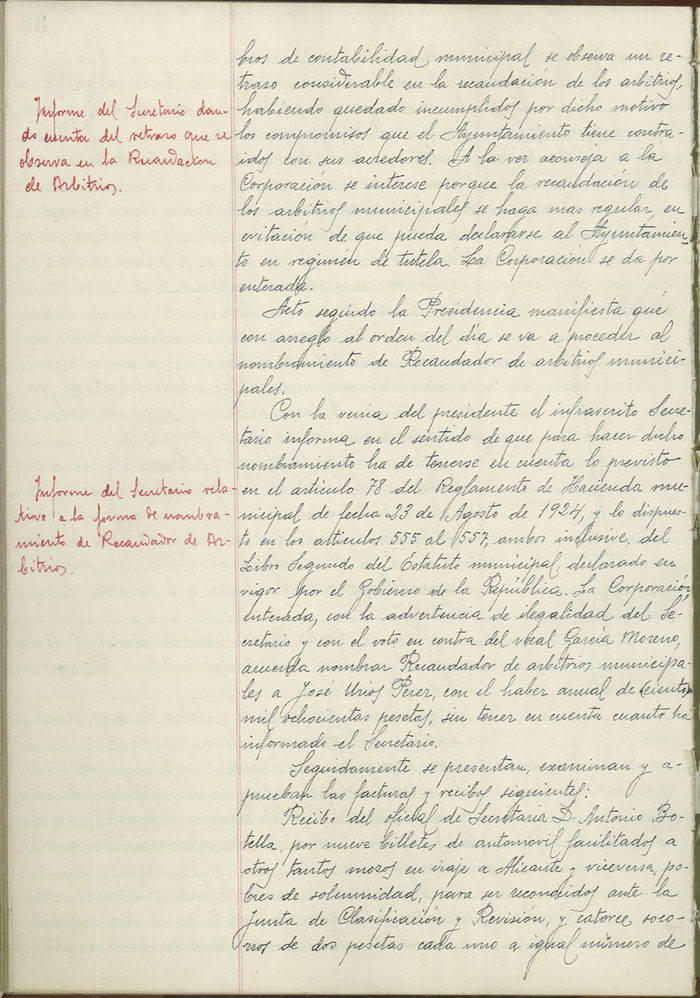 bros de contabilidad municipal se observa un re-
traso considerable en la recaudacion de los arbitrios,
habiendo quedado incumplidos por dicho motivo
los compromisos que el Ayuntamiento tiene contra-
idos con sus acredores. A la vez aconseja a la
Corporación se interese porque la recaudación de
los arbitrios municipales se haga mas regular, en
evitación de que pueda declararse al Ayuntamien-
to en regimen de tutela. La Corporación se da por
enterada.
Informe del Secretario dan-
do cuenta del retraso que se
observa en la Recaudacion
de Arbitrios.
Acto seguido la Presidencia manifiesta que
con arreglo al orden del día se va a proceder al
nombramiento de Recaudador de arbitrios munici-
pales.
Con la venia del presidente el infrascrito Secre-
tario informa en el sentido de que para hacer dicho
nombramiento ha de tenerse en cuenta lo previsto
en el articulo 78 del Reglamento de Hacienda mu-
nicipal de fecha 23 de Agosto de 1924, y lo dispues-
to en los articulos 555 al 557, ambos inclusive, del
Libro Segundo del Estatuto municipal declarado en
vigor por el Gobierno de la República. La Corporación
enterada, con la advertencia de ilegalidad del Se-
cretario y con el voto en contra del vocal García Moreno,
acuerda nombrar Recaudador de arbitrios municipa-
les a José Urios Perez, con el haber anual de
mil pesetas, sin tener en cuenta cuanto ha
informado el Secretario.
Informe del Secretario rela-
tivo a la forma de nombra-
miento de Recaudador de Ar-
bitrios.
Seguidamente se presentan, examinan y a-
prueban las facturas y recibos siguientes:
Recibo del oficial de Secretaria D. Antonio Bo-
tella, por nueve billetes de automovil facilitados a
otros tantos mozos en viaje a Alicante y viceversa, po-
bres de solemnidad, para ser ante la
Junta de Clasificación y Revisión, y catorce soco-
rros de dos pesetas cada uno a igual número de